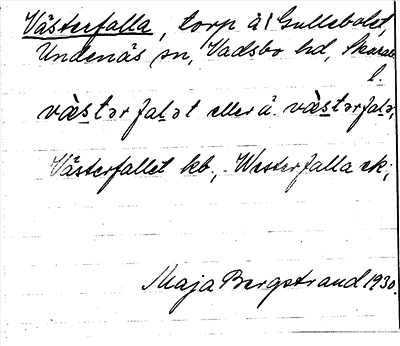 Västerfalla, torp å/ Gullebolet,
Undenäs sn, Vadsbo hd, Skarab.
l.
vàstərfalət eller å. vàstərfalə,
Västerfallet kb., Westerfalla ek;
Maja Bergstrand 1930.